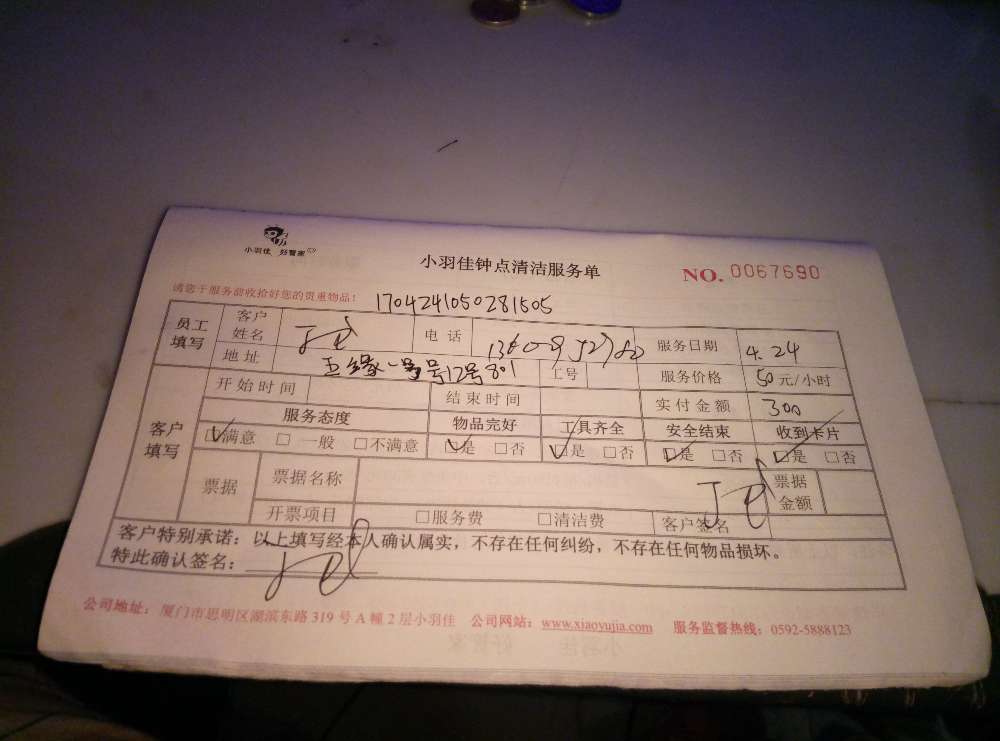 小羽佳 好管家
小羽佳钟点清洁服务单
NO. 0067690
请您于服务前收拾好您的贵重物品！
1704241050281505
员工填写 客户姓名 电话 服务日期 4.24
地址 五缘一号号12号801 工号 服务价格 50元/小时
客户填写 开始时间 结束时间 实付金额 300
服务态度 物品完好 工具齐全 安全结束 收到卡片
☑满意 □一般 □不满意 ☑是 □否 ☑是 □否 ☑是 □否 ☑是 □否
票据 票据名称 票据金额
开票项目 □服务费 □清洁费 客户签名
客户特别承诺：以上填写经本人确认属实，不存在任何纠纷，不存在任何物品损坏。
特此确认签名：
公司地址：厦门市思明区湖滨东路319号A幢2层小羽佳 公司网站：www.xiaoyujia.com 服务监督热线：0592-5888123